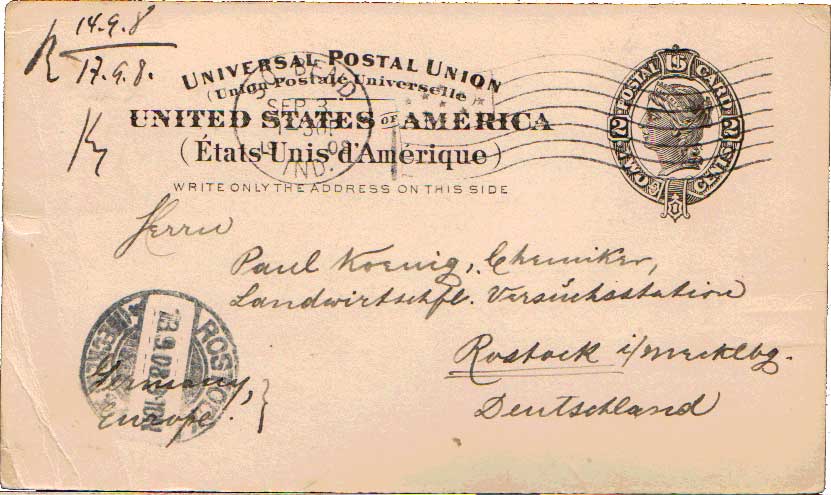 14.9.8
17.9.8.
UNIVERSAL POSTAL UNION
(Union Postale Universelle)
UNITED STATES OF AMERICA
(États-Unis d'Amérique)
WRITE ONLY THE ADDRESS ON THIS SIDE
SO. BEND
SEP 3
08
IND.
POSTAL CARD
U.S.
2 2
Herrn
Paul Koenig, Chemiker,
Landwirtschfl. Versuchsstation
Rostock i/Mecklbg.
Deutschland
Germany,
Europe.
ROSTOCK
13.9.08